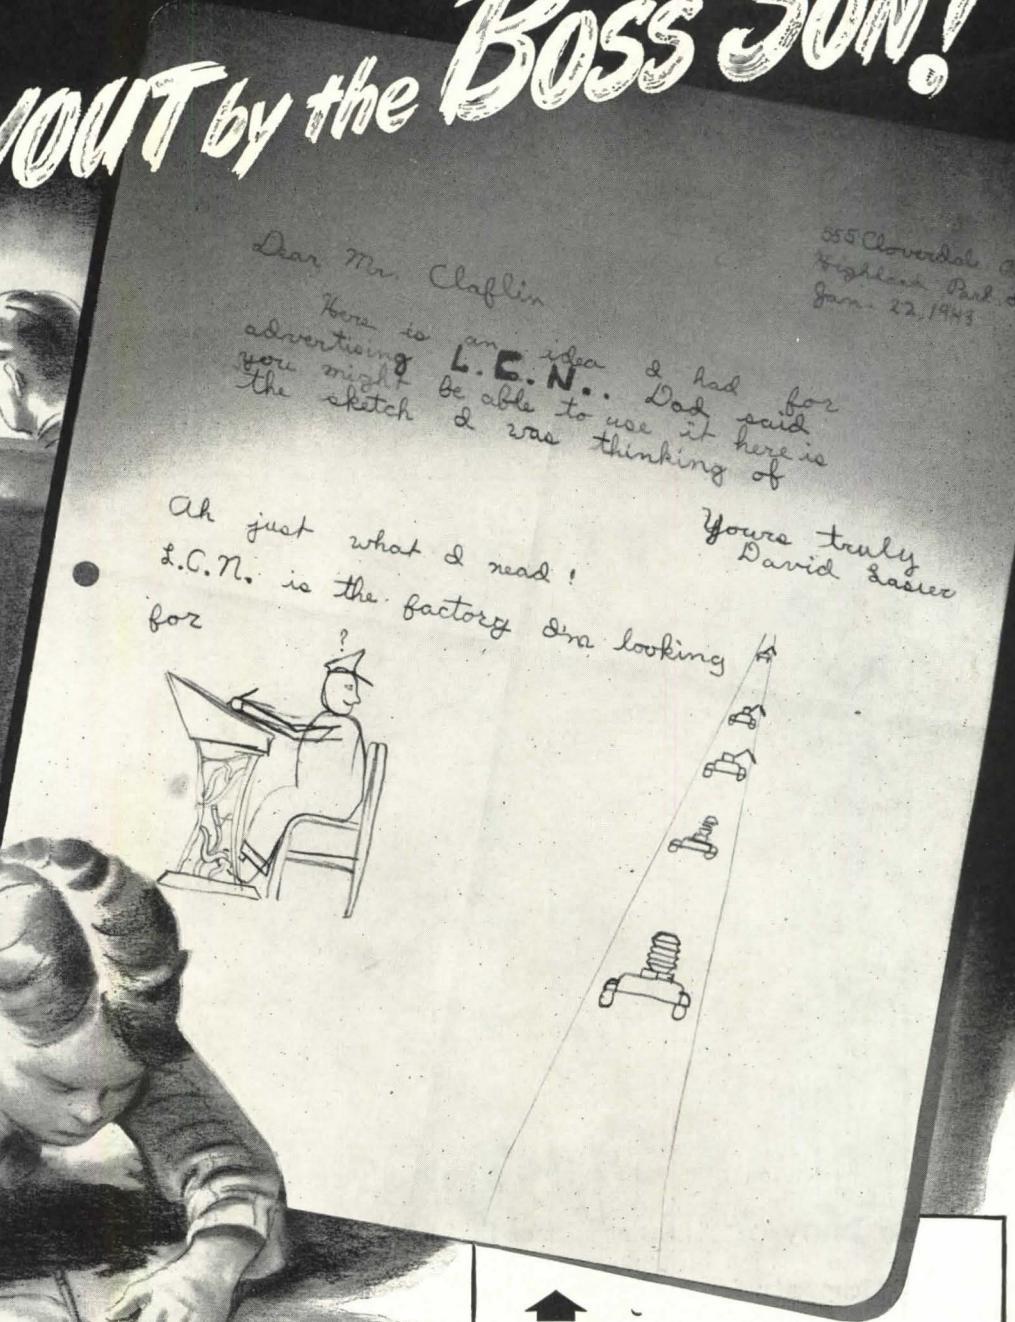 YOUT by the BOSS SON!
555 Cloverdale
Highland Park
Jan. 22, 1943
Dear Mr. Claflin
Here is an idea I had for
advertising L.C.N.. Dad said
you might be able to use it here is
the sketch I was thinking of
Yours truly
David Lasier
Ah just what I nead!
L.C.N. is the factory I'm looking
for
?